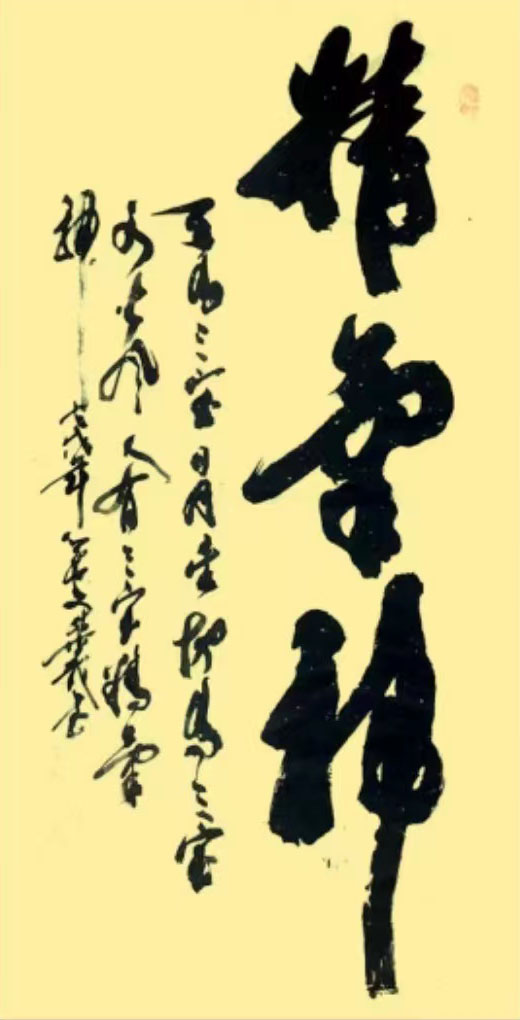 精氣神
天有三宝日月星地有三宝
水火风人有三宝精氣
神
戊年